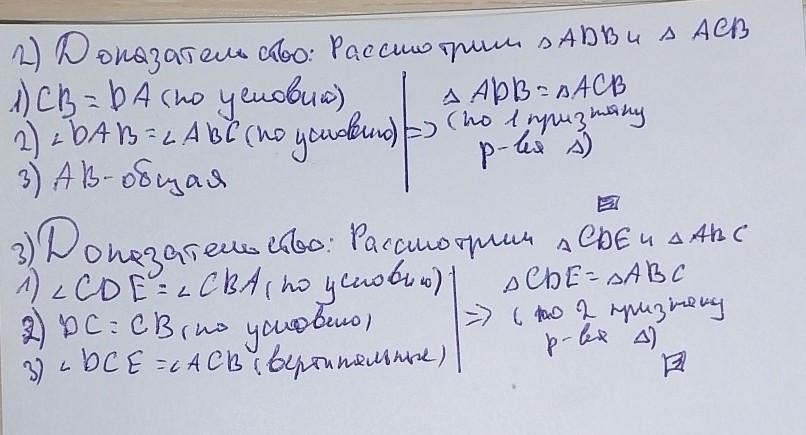 2) Доказательство: Рассмотрим △ADB и △ACB
1) CB = DA (по условию)
2) ∠DAB = ∠ABC (по условию)
3) AB - общая
=> △ADB = △ACB
(по 1 признаку
р-ва △)
3) Доказательство: Рассмотрим △CDE и △ABC
1) ∠CDE = ∠CBA (по условию)
2) DC = CB (по условию)
3) ∠DCE = ∠ACB (вертикальные)
=> △CDE = △ABC
(по 2 признаку
р-ва △)